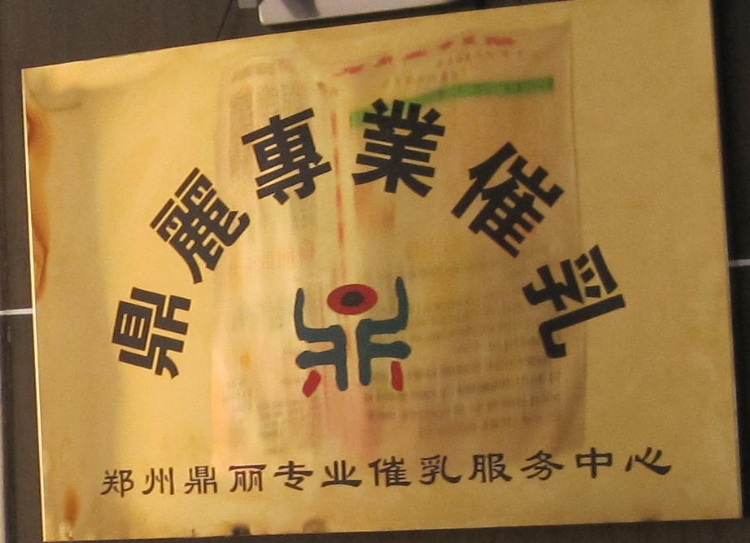 鼎麗專業催乳
郑州鼎丽专业催乳服务中心